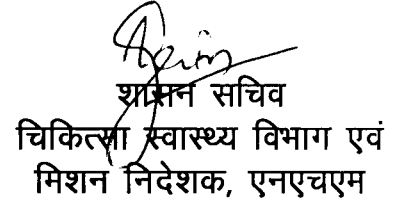 शासन सचिव
चिकित्सा स्वास्थ्य विभाग एवं
मिशन निदेशक, एनएचएम